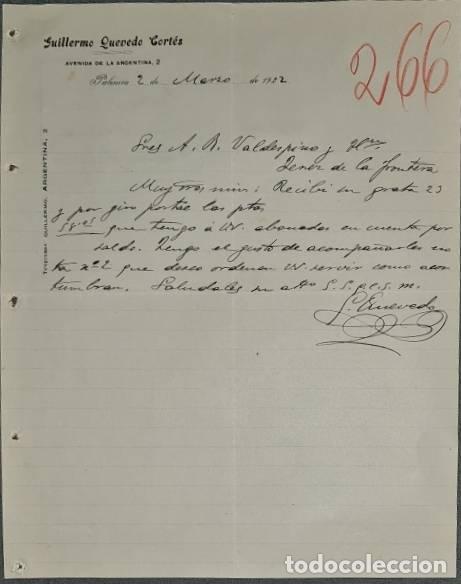 Guillermo Quevedo Cortés
AVENIDA DE LA ARGENTINA, 2
Palencia 2 de Marzo de 1922
266
Telegramas: GUILLERMO, ARGENTINA, 2
Sres A. R. Valdespino y Hno.
Jerez de la frontera
Muy Sres mios: Recibi su grata 23
y por giro postal las ptas
que tengo á VV. abonadas en cuenta por
saldo. Tengo el gusto de acompañarles no
ta nº 2 que deseo ordenen VV. servir como acos
tumbran. Saludales su atto S. S. q. e. s. m.
G. Quevedo
todocoleccion
todocoleccion.net